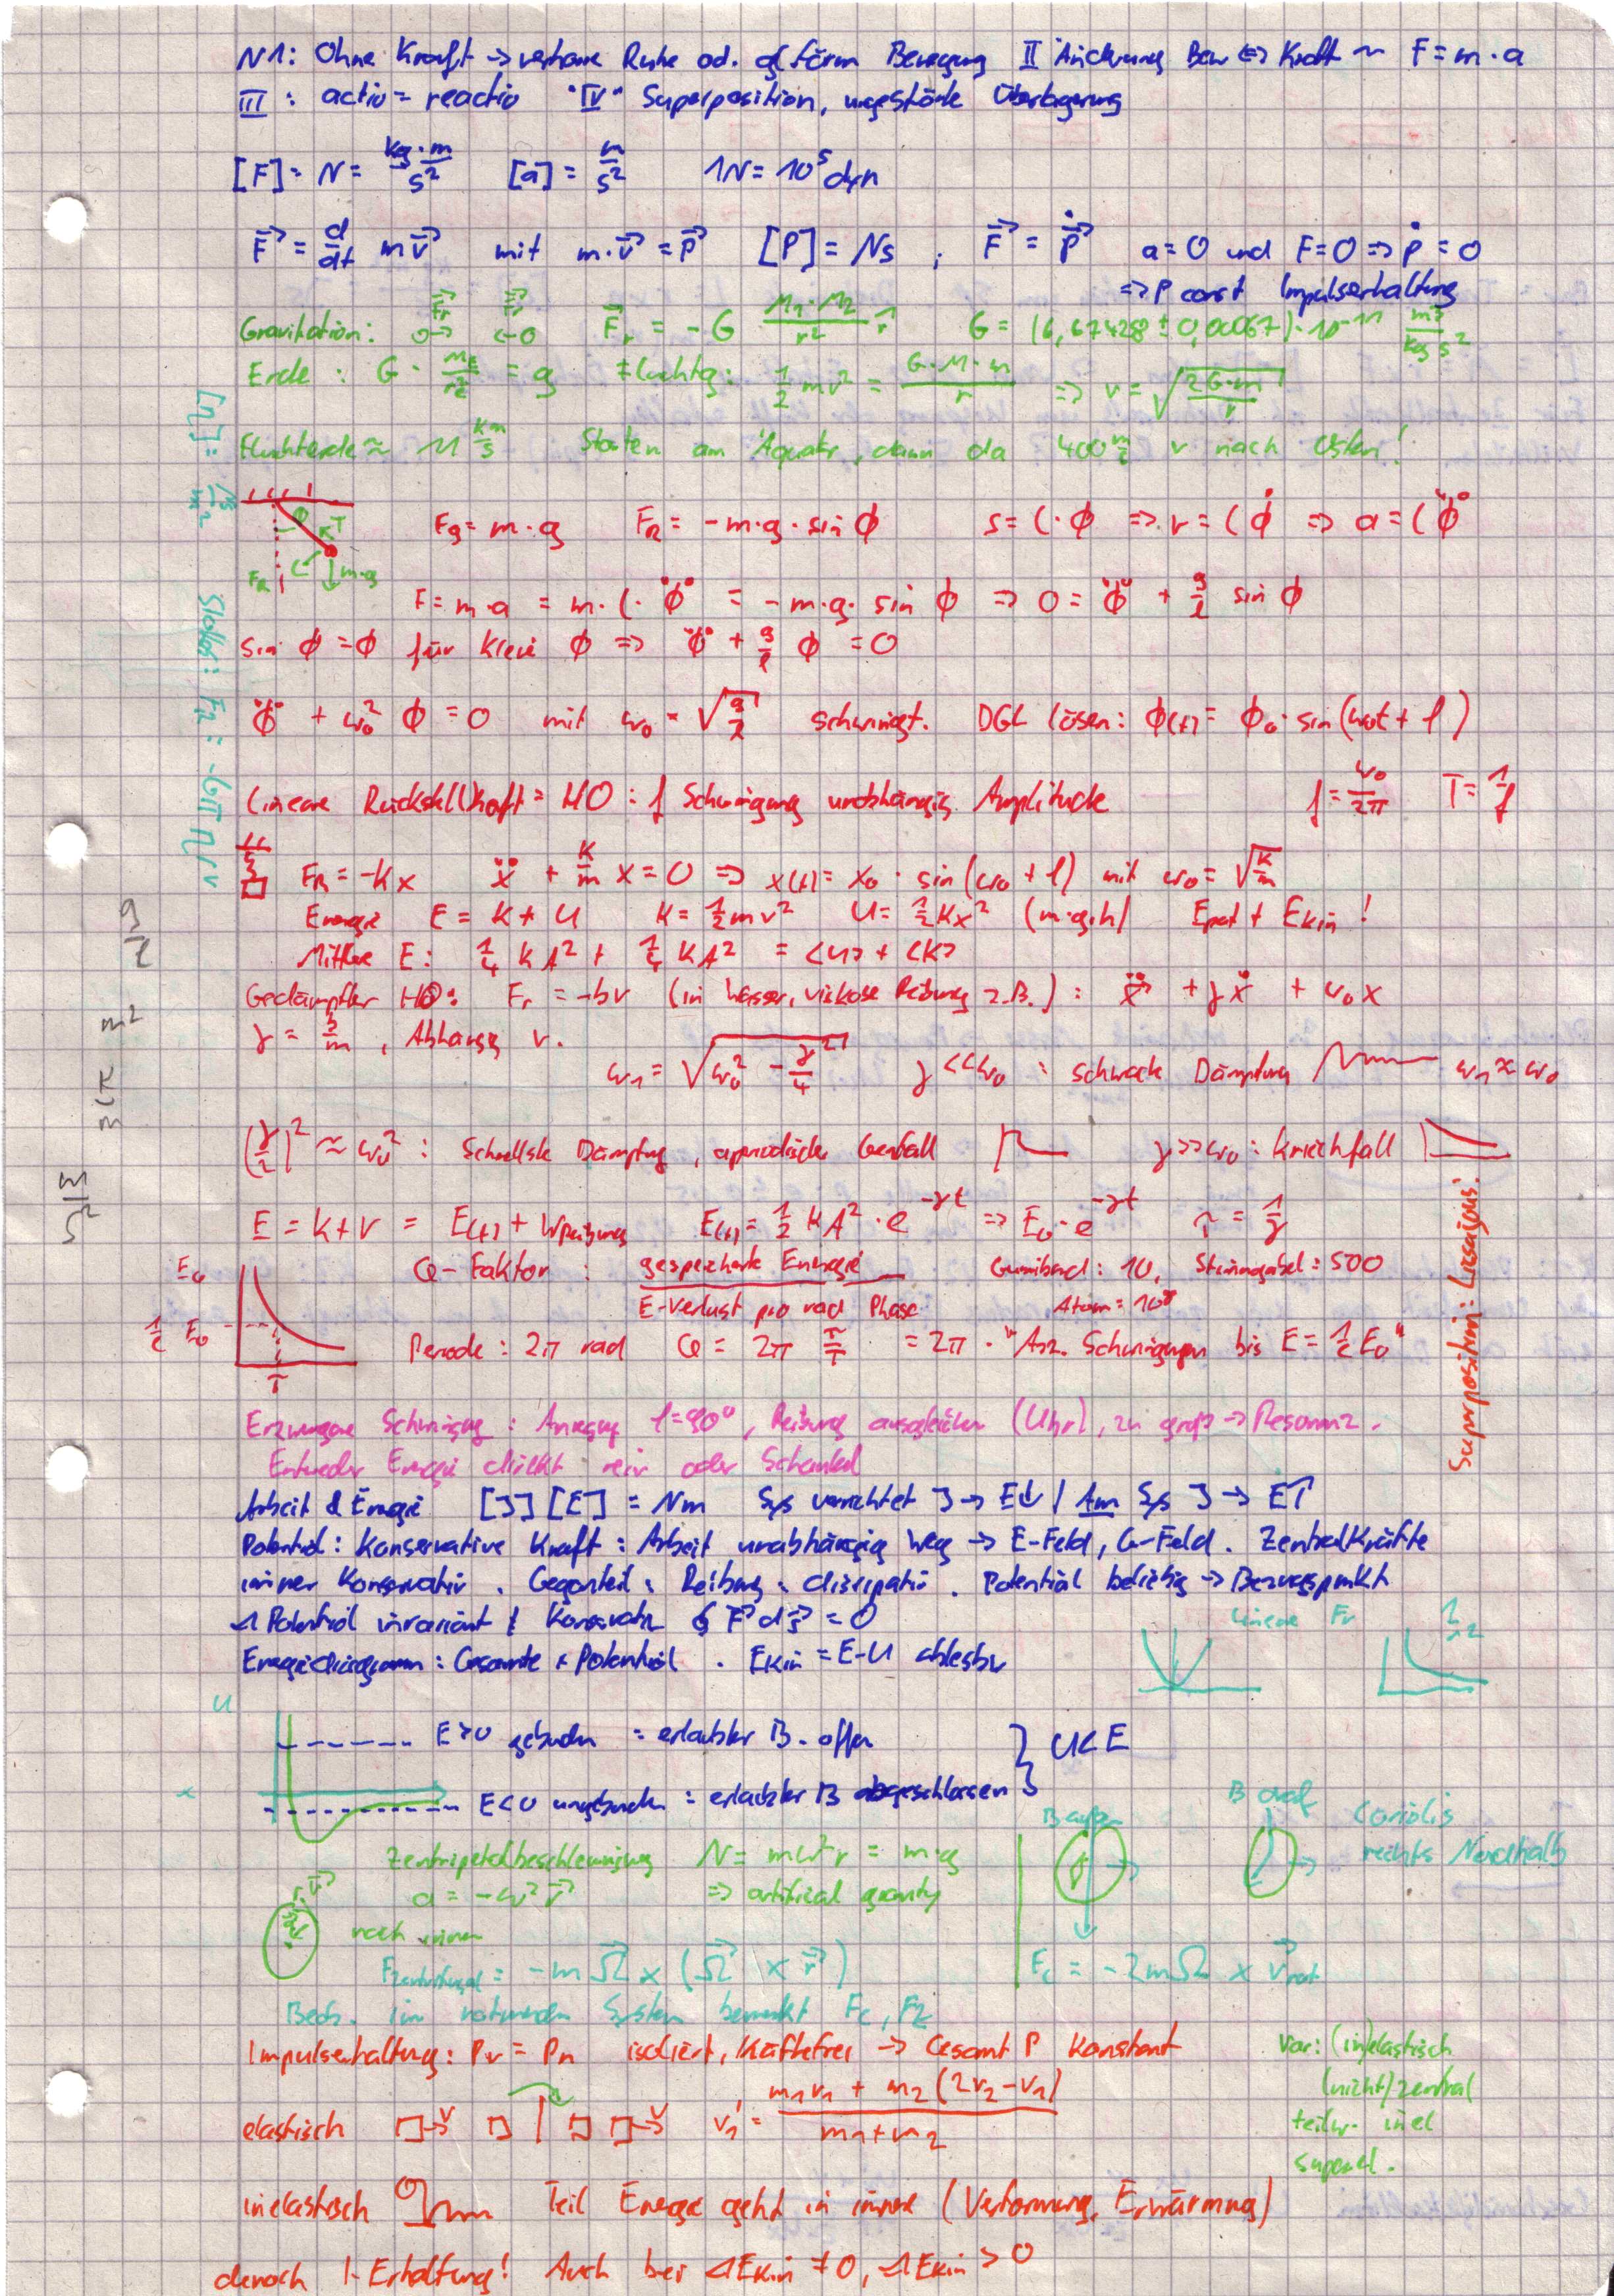 N1: Ohne Kraft → verharre Ruhe od. glförm Bewegung II Änderung Bew ⇔ Kraft ~ F = m·a
III: actio = reactio "IV" Superposition, ungestörte Überlagerung
[F] = N = kg·m/s² [a] = m/s² 1N = 10⁵ dyn
F⃗ = d/dt m v⃗ mit m·v⃗ = p⃗ [P] = Ns ; F⃗ = ṗ⃗ a=0 und F=0 ⇒ ṗ = 0
⇒ P const Impulserhaltung
Gravitation: F⃗r F⃗r F⃗r = -G M1·M2/r² r̂ G = (6,67428 ± 0,00067)·10⁻¹¹ m³/kg s²
Erde: G · mE/r² = g Fluchtg: ½mv² = G·M·m/r ⇒ v = √(2G·m/r)
Fluchterde ≈ 11 km/s Starten am Äquator, dann da 400 m/s v nach Osten!
Φ T FR m·g
Fg = m·g FR = -m·g·sin ϕ s = l·ϕ ⇒ v = l ϕ̇ ⇒ a = l ϕ̈
F = m·a = m·l·ϕ̈ = -m·g·sin ϕ ⇒ 0 = ϕ̈ + g/l sin ϕ
sin ϕ = ϕ für kleine ϕ ⇒ ϕ̈ + g/l ϕ = 0
ϕ̈ + ω₀² ϕ = 0 mit ω₀ = √(g/l) schwingt. DGL lösen: ϕ(t) = ϕ₀·sin(ω₀t + φ)
Lineare Rückstellkraft = HO: f Schwingung unabhängig Amplitude f = ω₀/2π T = 1/f
FR = -Kx ẍ + K/m x = 0 ⇒ x(t) = x₀ · sin(ω₀ + φ) mit ω₀ = √(K/m)
Energie E = K + U K = ½mv² U = ½Kx² (m·g·h) Epot + Ekin !
Mittlere E: ¼ K A² + ¼ K A² = <U> + <K>
Gedämpfter HO: Fr = -bv (in Wasser, viskose Reibung z.B.): ẍ + γẋ + ω₀x
γ = b/m, Abhängig v.
ω₁ = √(ω₀² - γ²/4) γ << ω₀ : schwache Dämpfung ω₁ ≈ ω₀
(γ/2)² ≈ ω₀² : Schnellste Dämpfung, aperiodischer Grenzfall γ >> ω₀ : Kriechfall
E = K+V = E(t) + WReibung E(t) = ½ K A² · e^-γt ⇒ E₀·e^-γt τ = 1/γ
E₀ 1/e E₀ τ
Q-Faktor : gespeicherte Energie / E-Verlust pro rad Phase Gummiband: 10, Stimmgabel: 500
Atom = 10⁸
Periode: 2π rad Q = 2π τ/T = 2π · "Anz. Schwingungen bis E = 1/e E₀"
Erzwungene Schwingung: Anregung φ=90°, Reibung ausgleichen (Uhr), zu groß → Resonanz.
Entweder Energie direkt rein oder Schaukel
Arbeit & Energie [J][E] = Nm Sys verrichtet J → E↓ / Am Sys J → E↑
Potential: Konservative Kraft: Arbeit unabhängig Weg → E-Feld, G-Feld. Zentralkräfte
immer konservativ. Gegenteil: Reibung: dissipativ. Potential beliebig → Bezugspunkt
Δ Potential invariant & Konservativ ∮ F⃗ ds⃗ = 0
Energiediagramm: Gesamte + Potential . Ekin = E-U ablesbar
lineare Fr 1/r²
U x
E>0 gebunden = erlaubter B. offen
E<0 ungebunden : erlaubter B abgeschlossen } U<E
Zentripetalbeschleunigung N = mω²r = m·g
a = -ω² r⃗ ⇒ artifical gravity
nach innen
B außen B drauf Coriolis rechts Nordhalb
Fzentrifugal = -m Ω⃗ × (Ω⃗ × r⃗) Fc = -2mΩ × v⃗rot
Beob. im rotierenden System bemerkt Fc, Fz
Impulserhaltung: Pv = Pn isoliert, kräftefrei → Gesamt P Konstant
elastisch v v v₁' = m1v1 + m2(2v2-v1) / m1+m2
Var: (in)elastisch
(nicht) zentral
teilw. inel
superel.
inelastisch Teil Energie geht in innere (Verformung, Erwärmung)
dennoch I-Erhaltung! Auch bei ΔEkin ≠ 0, ΔEkin > 0
Stokes: FR = -6π η r v
[η] = Ns/m²
g/l
m²
m/s²
Superposition: Lissajous.